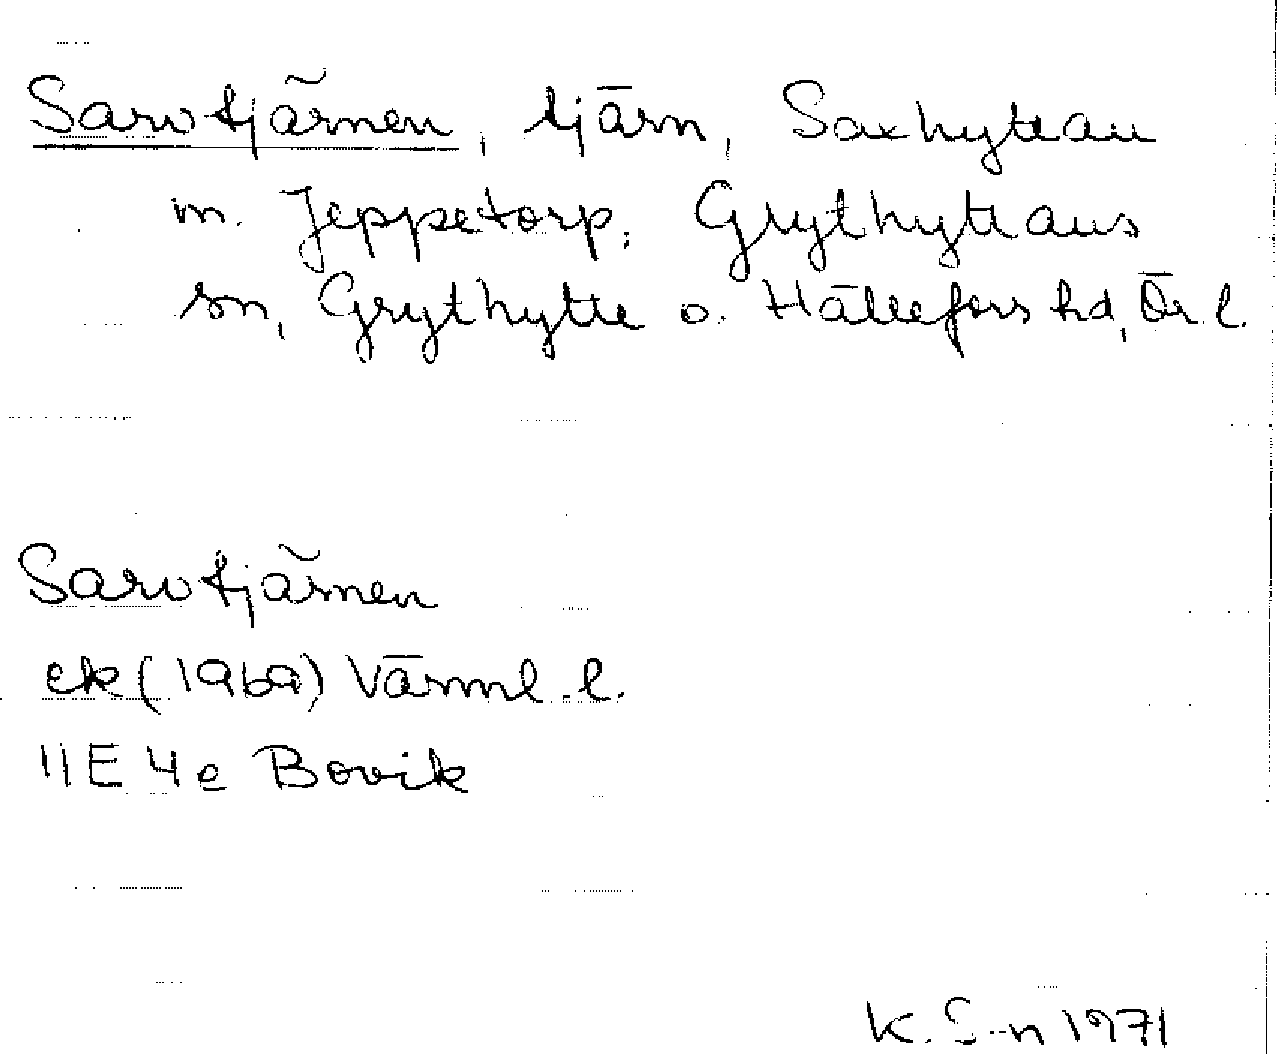 Sarvtjärnen, tjärn, Saxhyttan
m. Jeppetorp, Grythyttans
sn, Grythytte o. Hällefors hd, Ör. l.
Sarvtjärnen
ek (1969) Värml. l.
11E 4e Bovik
K. S-n 1971